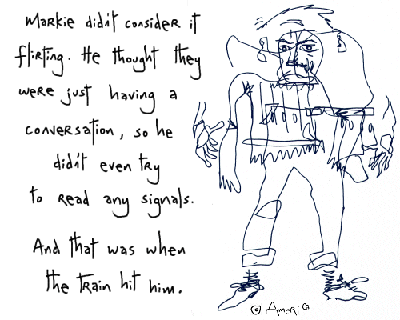 Markie didn't consider it
flirting. He thought they
were just having a
conversation, so he
didn't even try
to read any signals.
And that was when
the train hit him.